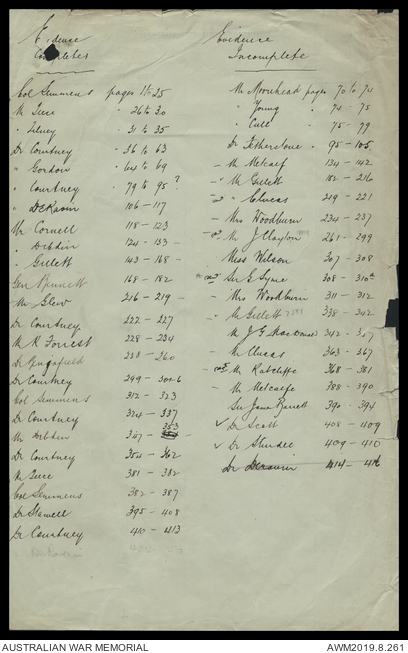 Evidence
Completes
Col Semmens pages 1 to 25
Mr Tuce " 26 to 30
" Tilney " 31 to 35
Dr Courtney " 36 to 63
" Gordon " 64 to 69
" Courtney " 79 to 95 ?
" DeRavin 106 - 117
Mr Cornell 118 - 123
" Dibdin 124 - 133 -
" Gillett 143 - 168 -
Gen Burnett 168 - 182
Mr Glew 216 - 219 -
Dr Courtney 222 - 227
Mr R Forrest 228 - 234
Dr 238 - 260
Dr Courtney 299 - 306
Col Semmens 312 - 323
Dr Courtney 324 - 337
Mr Dibdin 347 - 353
Dr Courtney 354 - 362
Mr Tuce 381 - 382
Col Semmens 382 - 387
Dr Stawell 395 - 408
Dr Courtney 410 - 413
Evidence
Incomplete
Mr Moorhead pages 70 to 74
" Young " 74 - 75
" Cull " 75 - 79
Dr Fetherstone " 95 - 105
- Mr Metcalf 134 - 142
- Mr Gillett 182 - 216
" Clucas 219 - 221
- Mrs Woodburn 234 - 237
Mr J Clayton 261 - 299
Miss Wilson 307 - 308
Sir G Syme 308 - 310
- Mrs Woodburn 311 - 312
- Mr Gillett 338 - 342
Mr J G 342 - 347
- Mr Clucas 363 - 367
Mr Ratcliffe 368 - 381
- Mr Metcalfe 388 - 390
Sir James Barrett 390 - 394
✓ Dr Scott 408 - 409
✓ Dr 409 - 410
Dr Deravin 414 - 416
AUSTRALIAN WAR MEMORIAL AWM2019.8.261